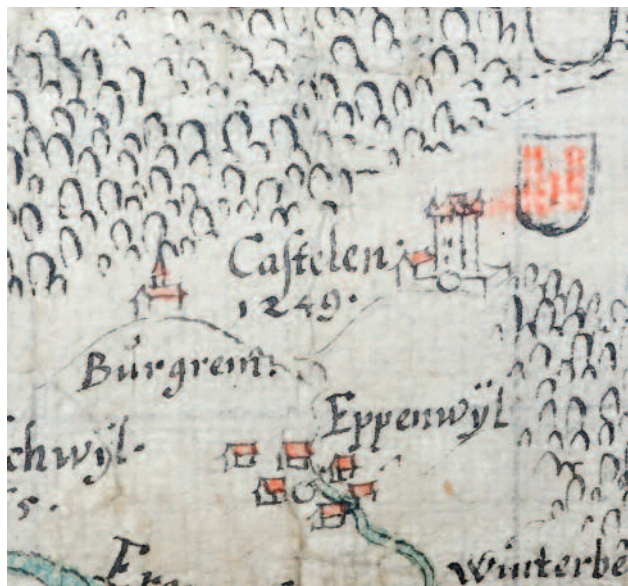 Castelen·
1249·
Burgrein:
Eppenwÿl
chwÿl·
5·
Winterbe